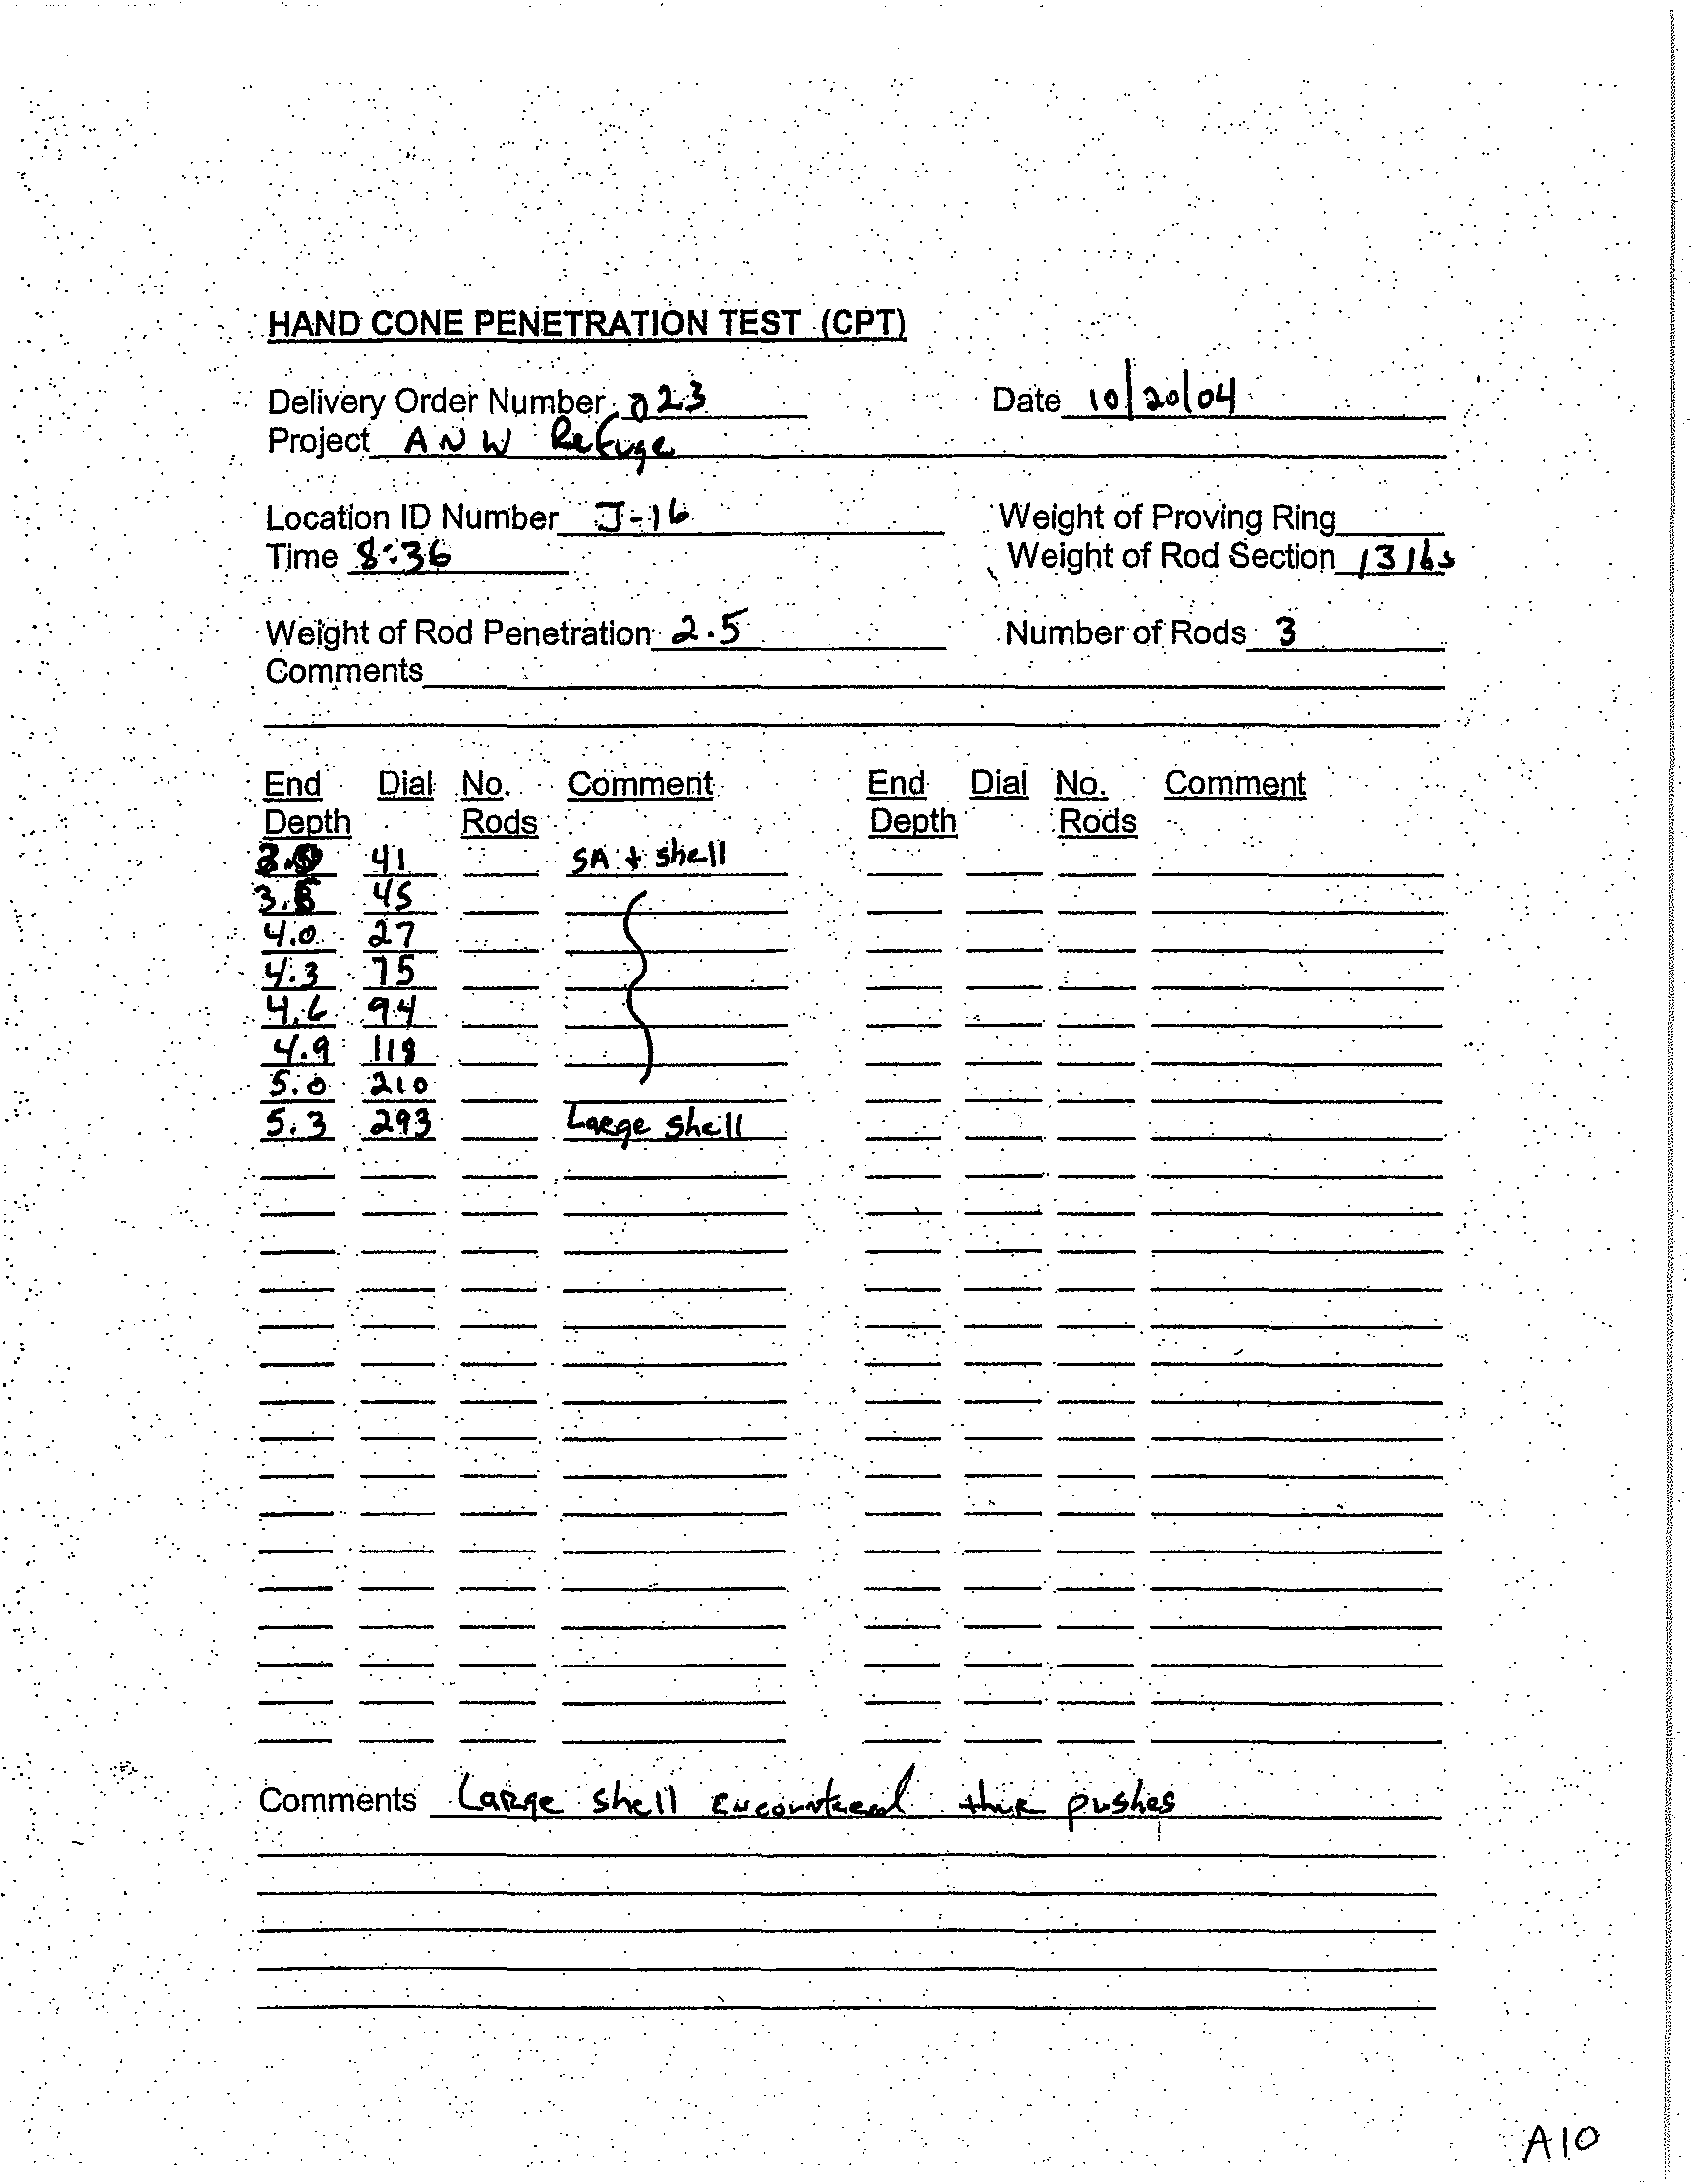 HAND CONE PENETRATION TEST (CPT)
Delivery Order Number 023 Date 10/20/04
Project ANW Refuge
Location ID Number J-16 Weight of Proving Ring
Time 8:36 Weight of Rod Section 13 lbs
Weight of Rod Penetration 2.5 Number of Rods 3
Comments
End Dial No. Comment End Dial No. Comment
Depth Rods Depth Rods
41 SA + shell
45
4.0 27
4.3 75
4.6 94
4.9 118
5.0 210
5.3 293 Large shell
Comments Large shell encountered pushes
A10